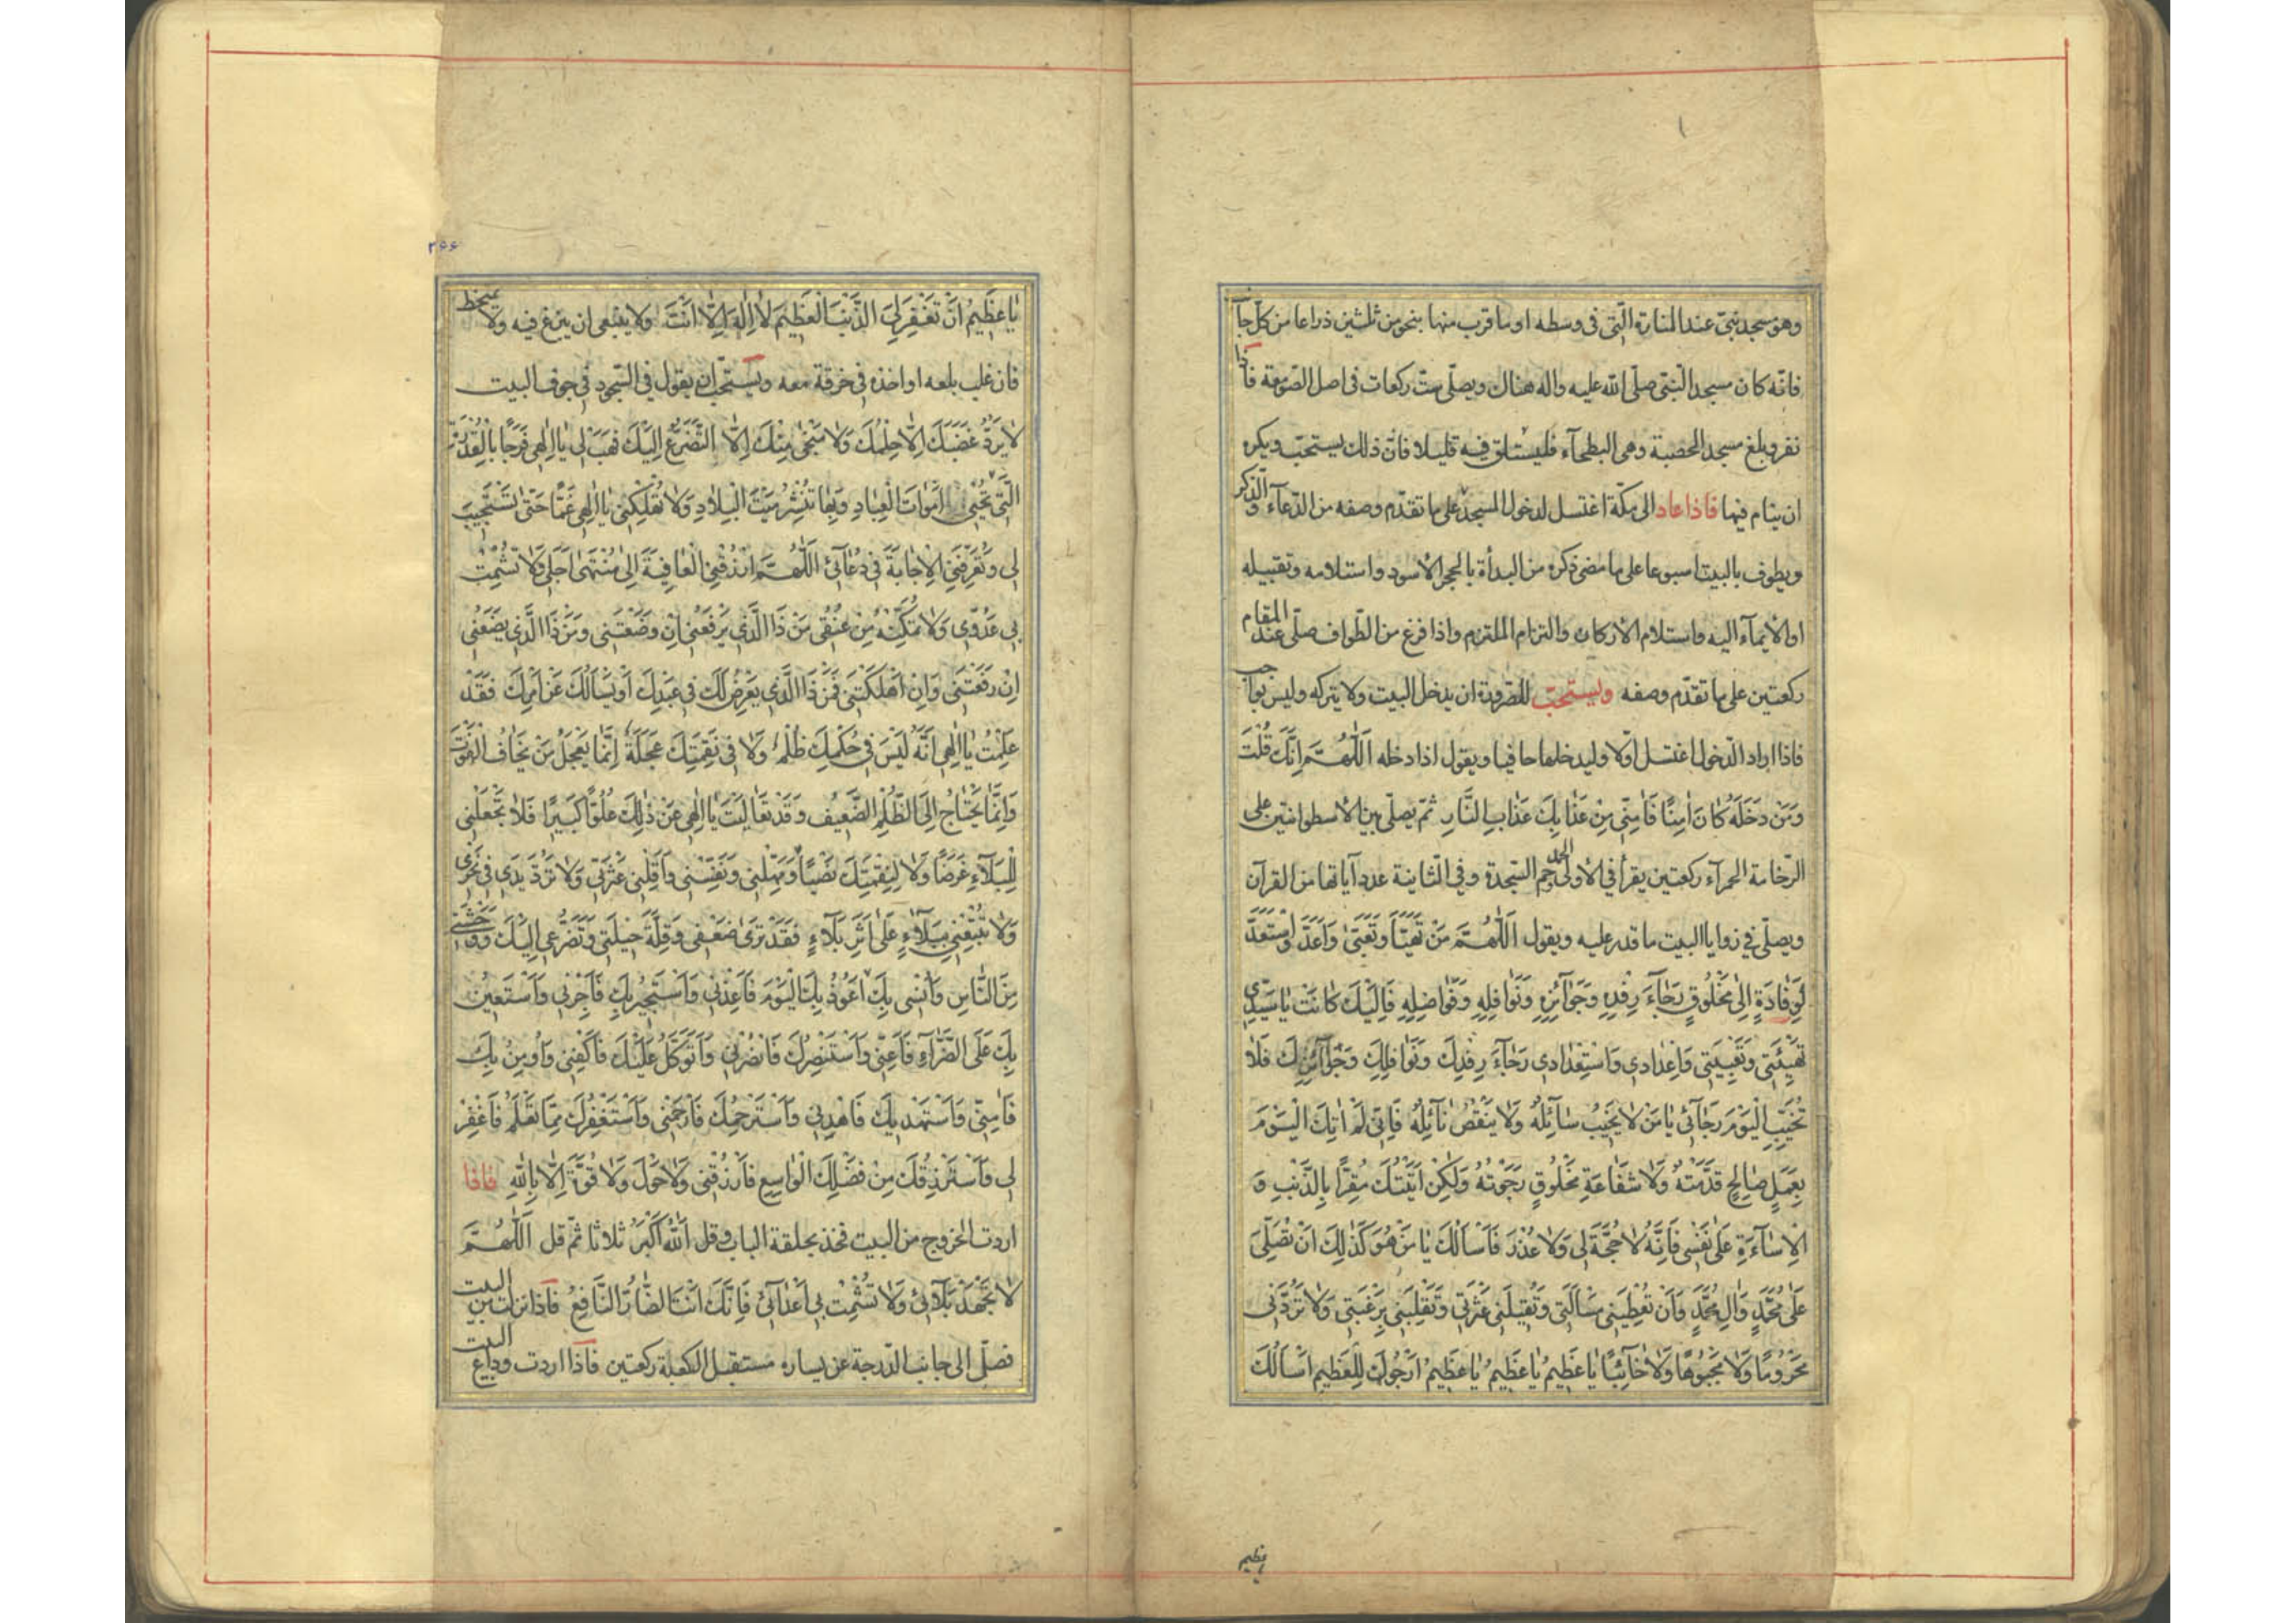 وهو مسجد منى عند المنارة الّتى فى وسطه او ما قرب منها بنحو من ثلثين ذراعا من كلّ جا
فانّه كان مسجد النبّى صلّى الله عليه واله هناك ويصلّى ستّ ركعات فى اصل الصّومعة فاذا
نفر وبلغ مسجد الحصبة وهى البطحآء فليستلق فيه قليلا فانّ ذلك يستحبّ ويكره
ان ينام فيها فاذا عاد الى مكّة اغتسل لدخول المسجد على ما تقدّم وصفه من الدّعآء والذّكر
ويطوف بالبيت اسبوعا على ما مضى ذكره من البدأة بالحجر الأسود واستلامه وتقبيله
او الأيمآء اليه واستلام الأركان والتزام الملتزم واذا فرغ من الطّواف صلّى عند المقام
ركعتين على ما تقدّم وصفه ويستحبّ للصّرورة ان يدخل البيت ولا يتركه وليس بواجب
فاذا اراد الدّخول اغتسل اوّلا وليدخلها حافيا ويقول اذا دخله اَللّهُمَّ اِنَّكَ قُلْتَ
وَمَنْ دَخَلَهُ كَانَ اٰمِنًا فَاٰمِنّى مِنْ عَذَابِكَ عَذَابِ النَّارِ ثمّ يصلّى بين الأسطوانتين على
الرّخامة الحمرآء ركعتين يقرأ فى الأولى الحمد وحم السّجدة وفى الثّانية عدد آياتها من القرآن
ويصلّى فى زوايا البيت ما قدر عليه ويقول اَللّهُمَّ مَنْ تَهَيَّأَ وَتَعَبَّى وَاَعَدَّ وَاسْتَعَدَّ
لِوِفَادَةٍ اِلى مَخْلُوقٍ رَجَآءَ رِفْدِهِ وَجَوَآئِزِهِ وَنَوَافِلِهِ وَفَوَاضِلِهِ فَاِلَيْكَ كَانَتْ يَا سَيِّدِي
تَهْيِئَتى وَتَعْبِيَتى وَاِعْدَادي وَاسْتِعْدَادي رَجَآءَ رِفْدِكَ وَنَوَافِلِكَ وَجَوَآئِزِكَ فَلَا
تُخَيِّبِ الْيَوْمَ رَجَآئى يَا مَنْ لَا يَخيبُ سَآئِلُهُ وَلَا يَنْقُصُ نَآئِلُهُ فَاِنّى لَمْ اٰتِكَ الْيَوْمَ
بِعَمَلٍ صَالِحٍ قَدَّمْتُهُ وَلَا شَفَاعَةِ مَخْلُوقٍ رَجَوْتُهُ وَلكِنْ اَتَيْتُكَ مُقِرًّا بِالذَّنْبِ وَ
الْاِسَآءَةِ عَلى نَفْسى فَاِنَّهُ لَا حُجَّةَ لى وَلَا عُذْرَ فَاَسْاَلُكَ يَا مَنْ هُوَ كَذلِكَ اَنْ تُصَلِّىَ
عَلى مُحَمَّدٍ وَالِ مُحَمَّدٍ وَاَنْ تُعْطِيَنى مَسْاَلَتى وَتُقيلَنى عَثْرَتى وَتَقْلِبَنى بِرَغْبَتى وَلَا تَرُدَّنى
مَحْرُومًا وَلَا مَجْبُوهًا وَلَا خَآئِبًا يَا عَظيمُ يَا عَظيمُ يَا عَظيمُ اَرْجُوكَ لِلْعَظيمِ اَسْاَلُكَ
يا عظيم
٢٦٦
يَا عَظيمُ اَنْ تَغْفِرَ لِىَ الذَّنْبَ الْعَظيمَ لَا اِلهَ اِلَّا اَنْتَ ولا ينبغى ان يبزغ فيه ولا يمتخط
فان غلب بلعه او اخذه فى خرقة معه ويستحبّ ان يقول فى السّجود فى جوف البيت
لَا يَرُدُّ غَضَبَكَ اِلَّا حِلْمُكَ وَلَا يُنْجى مِنْكَ اِلَّا التَّضَرُّعُ اِلَيْكَ فَهَبْ لى يَا اِلهى فَرَجًا بِالْقُدْرَةِ
الَّتى تُحْيى اَمْوَاتَ الْعِبَادِ وَبِهَا تَنْشُرُ مَيْتَ الْبِلَادِ وَلَا تُهْلِكْنى يَا اِلهى غَمًّا حَتّى تَسْتَجيبَ
لى وَتُعَرِّفَنِى الْاِجَابَةَ فى دُعَآئى اَللّهُمَّ ارْزُقْنِى الْعَافِيَةَ اِلى مُنْتَهى اَجَلى وَلَا تُشْمِتْ
بى عَدُوّى وَلَا تُمَكِّنْهُ مِنْ عُنُقى مَنْ ذَا الَّذى يَرْفَعُنى اِنْ وَضَعْتَنى وَمَنْ ذَا الَّذى يَضَعُنى
اِنْ رَفَعْتَنى وَاِنْ اَهْلَكْتَنى فَمَنْ ذَا الَّذى يَعْرِضُ لَكَ فى عَبْدِكَ اَوْ يَسْاَلُكَ عَنْ اَمْرِكَ فَقَدْ
عَلِمْتُ يَا اِلهى اَنَّهُ لَيْسَ فى حُكْمِكَ ظُلْمٌ وَلَا فى نَقِمَتِكَ عَجَلَةٌ اِنَّمَا يَعْجَلُ مَنْ يَخَافُ الْفَوْتَ
وَاِنَّمَا يَحْتَاجُ اِلَى الظُّلْمِ الضَّعيفُ وَقَدْ تَعَالَيْتَ يَا اِلهى عَنْ ذلِكَ عُلُوًّا كَبيرًا فَلَا تَجْعَلْنى
لِلْبَلَآءِ غَرَضًا وَلَا لِنِقْمَتِكَ نَصَبًا وَمَهِّلْنى وَنَفِّسْنى وَاَقِلْنى عَثْرَتى وَلَا تَرُدَّ يَدى فى نَحْرى
وَلَا تُتْبِعْنى بِبَلَآءٍ عَلى اَثَرِ بَلَآءٍ فَقَدْ تَرى ضَعْفى وَقِلَّةَ حيلَتى وَتَضَرُّعى اِلَيْكَ وَوَحْشَتى
مِنَ النَّاسِ وَاُنْسى بِكَ اَعُوذُ بِكَ الْيَوْمَ فَاَعِذْنى وَاَسْتَجيرُ بِكَ فَاَجِرْنى وَاَسْتَعينُ
بِكَ عَلَى الضَّرَّآءِ فَاَعِنّى وَاَسْتَنْصِرُكَ فَانْصُرْنى وَاَتَوَكَّلُ عَلَيْكَ فَاكْفِنى وَاُومِنُ بِكَ
فَاٰمِنّى وَاَسْتَهْديكَ فَاهْدِنى وَاَسْتَرْحِمُكَ فَارْحَمْنى وَاَسْتَغْفِرُكَ مِمَّا تَعْلَمُ فَاغْفِرْ
لى وَاَسْتَرْزِقُكَ مِنْ فَضْلِكَ الْوَاسِعِ فَارْزُقْنى وَلَا حَوْلَ وَلَا قُوَّةَ اِلَّا بِاللهِ فاذا
اردت الخروج من البيت فخذ بحلقة الباب وقل اَللهُ اَكْبَرُ ثلاثا ثمّ قل اَللّهُمَّ
لَا تَجْهَدْ بَلَآئى وَلَا تُشْمِتْ بى اَعْدَآئى فَاِنَّكَ اَنْتَ الضَّارُّ النَّافِعُ فاذا نزلت من البيت
فصلّ الى جانب الدّرجة عن يساره مستقبل الكعبة ركعتين فاذا اردت وداع البيت